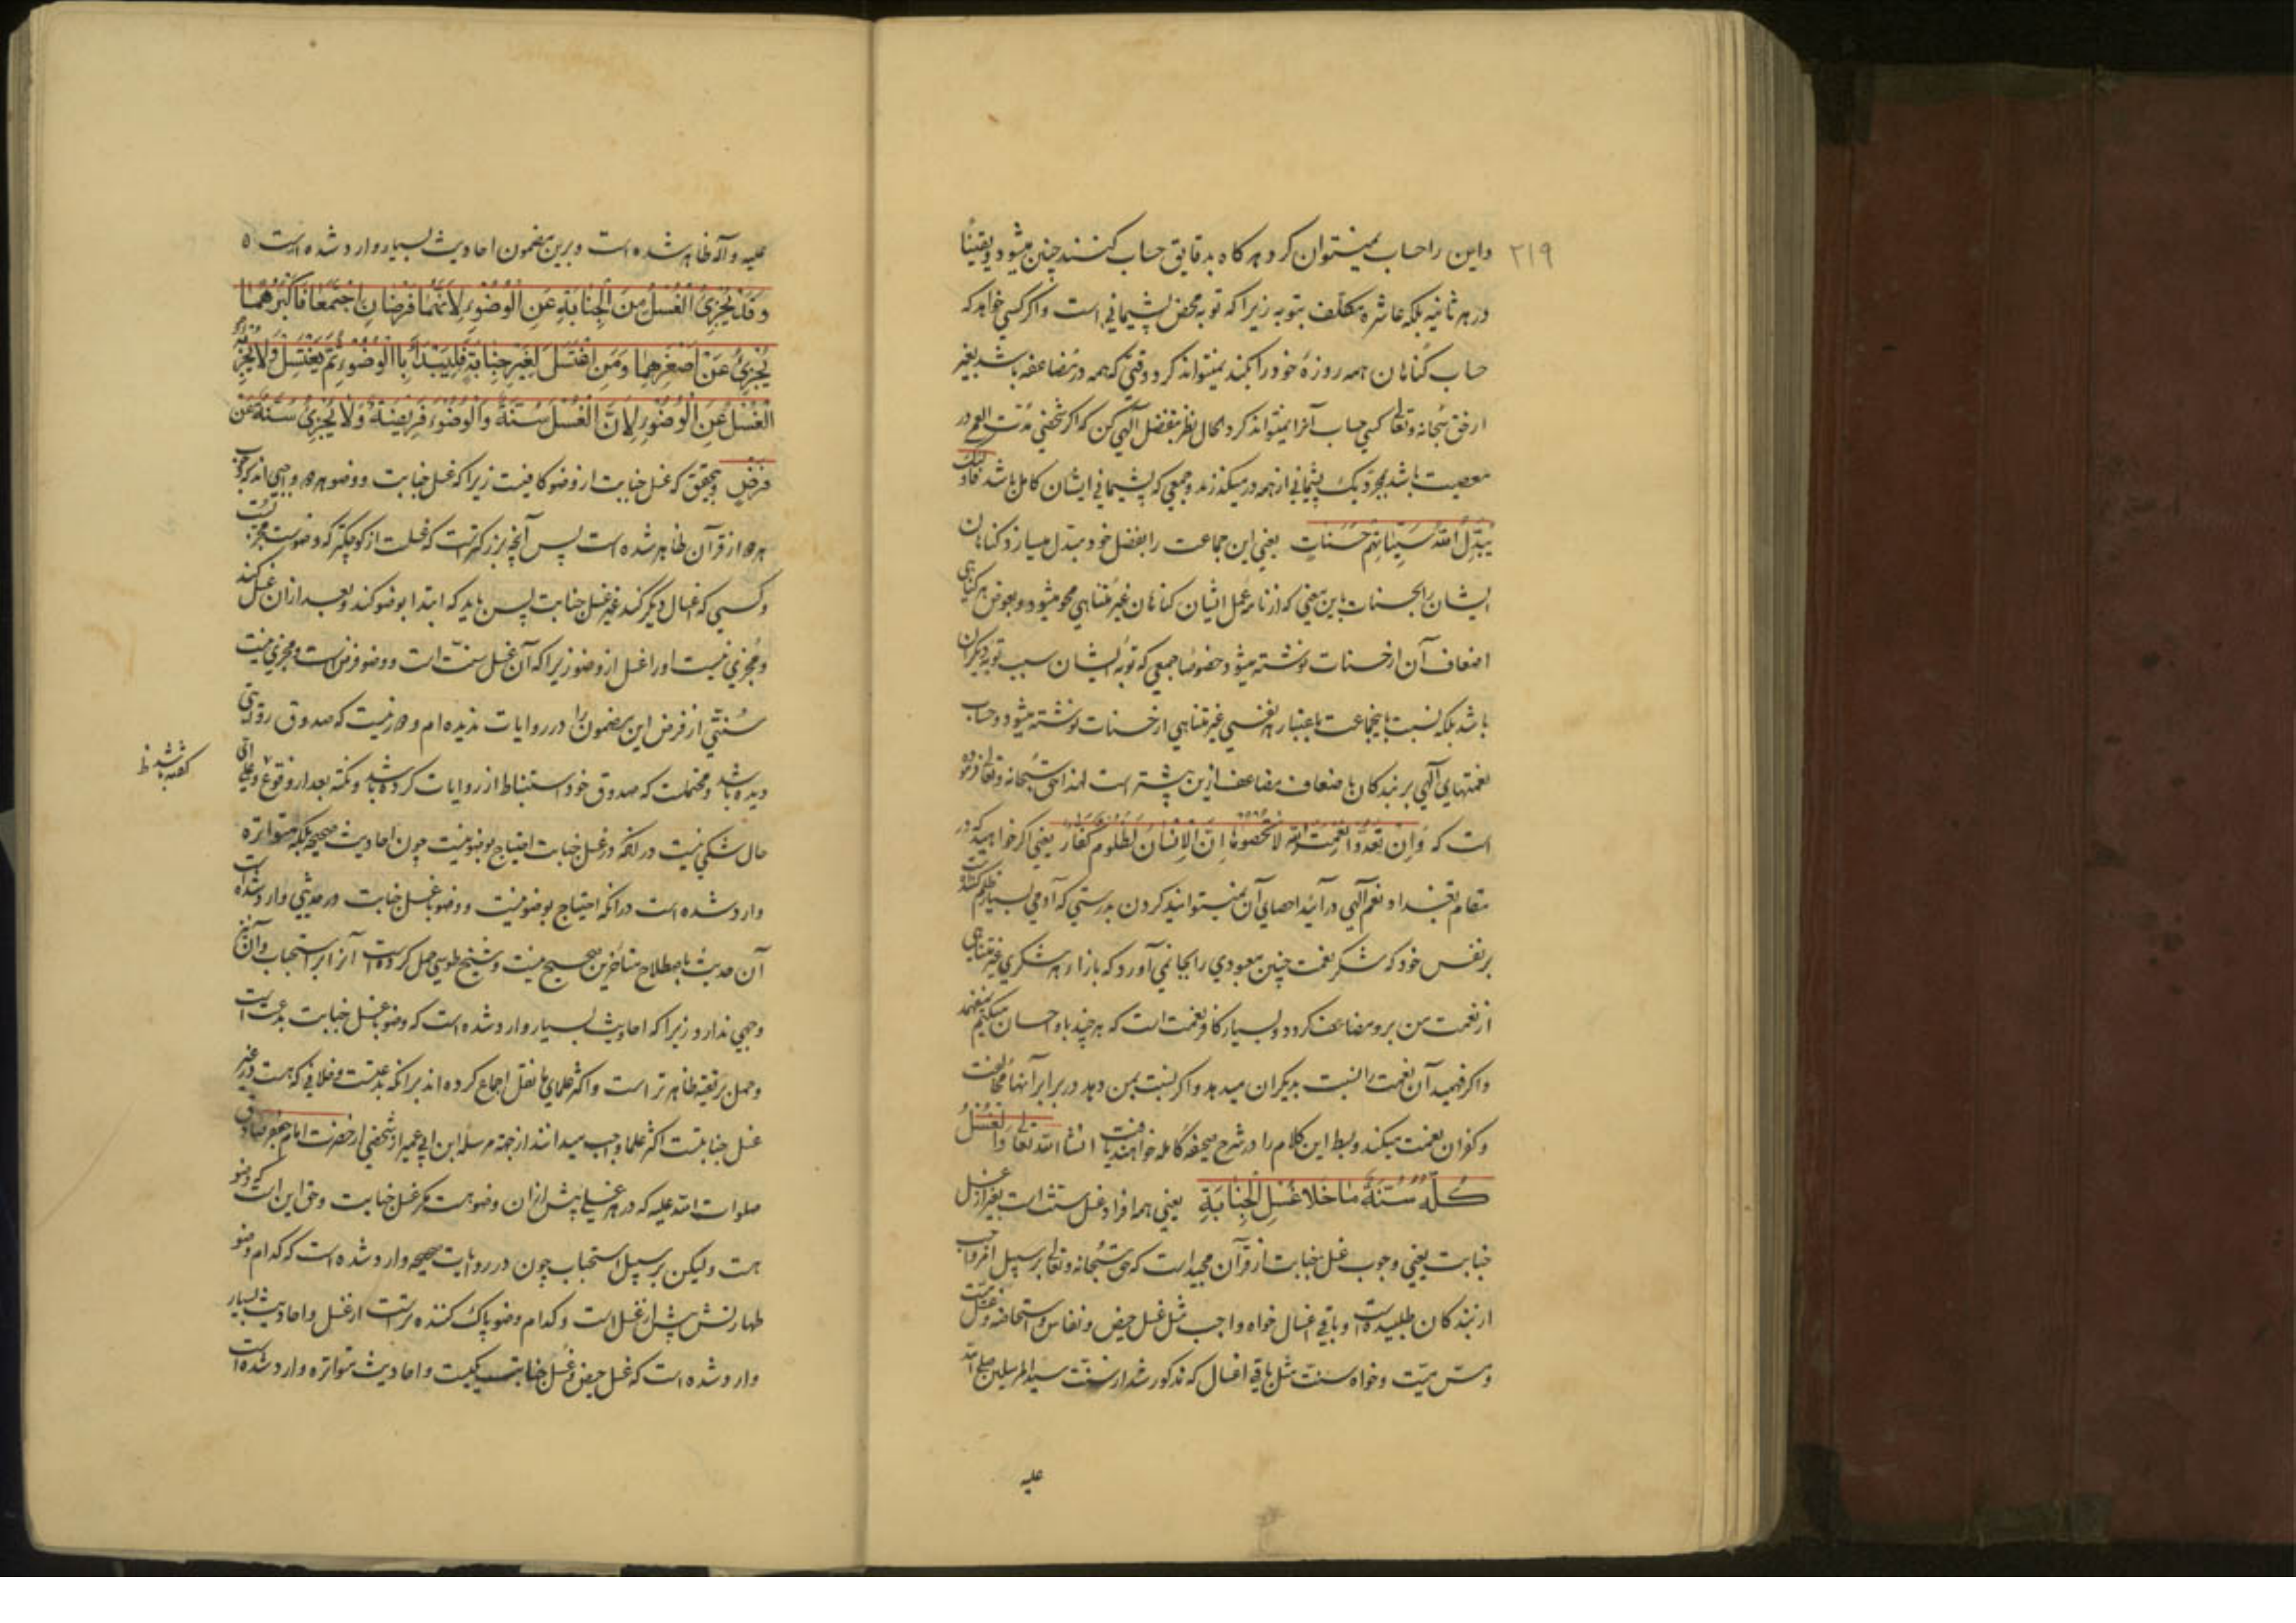 ۲۱۹
واین را حساب نمیتوان کرد هرکاه بدقایق حساب کنند چنین میشود و یقینًا
در هر ثانیه بلکه عاشره مکلف بتوبه زیرا که توبه محض پشیمانی است و اکر کسی خواهد که
حساب کناهان همه روزهٔ خود را بکند نمیتواند کرد وقتی که همه در مضاعفه باشد بغیر
از حق سبحانه وتعالی کسی حساب آنرا نمیتواند کرد الحال نظر بتفضل آلهی کن که اکر شخصی مدت العمر در
معصیت باشد بمجرد یک پشیمانی از همه درمیکذرند و جمعی که پشیمانی ایشان کامل باشد فاولئک
یُبَدِّلُ اللّهُ سَیِّئَاتِهِم حَسَنَاتٍ یعنی این جماعت را بفضل خود مبدل میسازد کناهان
ایشان را بحسنات باین معنی که از نامهٔ عمل ایشان کناهان غیر متناهی محو میشود و بعوض هر کناهی
اضعاف آن از حسنات نوشته میشود خصوصا جمعی که توبه ایشان سبب توبه دیکران
باشد بلکه نسبت باینجماعت باعتبار هر نفسی غیر متناهی از حسنات نوشته میشود و حساب
نعمتهای آلهی بر بندکان باضعاف مضاعف ازین بیشتر است لهذا حق سبحانه وتعالی فرموده
است که وَاِنْ تَعُدُّوا نِعْمَتَ اللّهِ لَا تُحْصُوهَا اِنَّ الْاِنْسَانَ لَظَلُومٌ کَفَّارٌ یعنی اکر خواهید که در
مقام تعداد نعم آلهی درآئید احصای آن نمیتوانید کردن بدرستی که آدمی بسیار ظلم کننده است
بر نفس خود که شکر نعمت چنین معبودی را بجا نمی آورد که بازاء هر شکری غیر متناهی
از نعمت من برو مضاعف کردد و بسیار کافر نعمت است که هر چند باو احسان میکنیم نمیفهمد
و اکر فهمید آن نعمت را نسبت بدیکران میدهد و اکر نسبت بمن دهد در برابر آنها مخالفت
و کفران نعمت میکند و بسط این کلام را در شرح صحیفه کامله خواهند یافت انشا الله تعالی وَالْغُسْلُ
کُلُّهُ سُنَّةٌ مَا خَلَا غُسْلِ الْجَنَابَةِ یعنی همه افراد غسل سنت است بغیر از غسل
جنابت یعنی وجوب غسل جنابت از قرآن مجید است که حق سبحانه وتعالی بر سبیل امر واجب
از بندکان طلبیده است و باقی اغسال خواه واجب مثل غسل حیض و نفاس و استحاضه و غسل میت
و مسّ میّت و خواه سنت مثل باقی اغسال که مذکور شد از سنت سید المرسلین صلی الله
علیه
علیه وآله ظاهر شده است و برین مضمون احادیث بسیار وارد شده است
وَقَدْ یُجْزِئُ الْغُسْلُ مِنَ الْجَنَابَةِ عَنِ الْوُضُوءِ لِاَنَّهُمَا فَرْضَانِ اجْتَمَعَا فَاَکْبَرُهُمَا
یُجْزِئُ عَنْ اَصْغَرِهِمَا وَمَنِ اغْتَسَلَ لِغَیْرِ جَنَابَةٍ فَلْیَبْدَأْ بِاالْوُضُوءِ ثُمَّ یَغْتَسِلُ وَلَا یُجْزِیهِ
الْغُسْلُ عَنِ الْوُضُوءِ لِاَنَّ الْغُسْلَ سُنَّةٌ وَالْوُضُوءَ فَرِیضَةٌ وَلَا یُجْزِئُ سُنَّةٌ عَنْ
فَرْضٍ و بتحقیق که غسل جنابت از وضو کافیست زیرا که غسل جنابت و وضو هر دو واجبی اند که وجوب
هر دو از قرآن ظاهر شده است پس آنچه بزرکتر است که غسلست از کوچکتر که وضوست مجزیست
و کسی که غسل دیکر کند غیر غسل جنابت پس باید که ابتدا بوضو کند و بعد ازان غسل کند
و مُجزی نیست او را غسل از وضو زیرا که آن غسل سنّت است و وضو فرض است و مجزی نیست
سُنّتی از فرض این مضمون را در روایات ندیده ام و دور نیست که صدوق روایتی
دیده باشد و محتملست که صدوق خود استنباط از روایات کرده باشد و نکته بعد از وقوع
کفته باشد ظ
حال شکی نیست در انکه در غسل جنابت احتیاج بوضو نیست چون احادیث صحیحه بلکه متواتره
وارد شده است در انکه احتیاج بوضو نیست و وضو با غسل جنابت در حدیثی وارد شده است
آن حدیث باصطلاح متأخرین صحیح نیست و شیخ طوسی حمل کرده است آنرا بر استحباب و آن نیز
وجهی ندارد زیرا که احادیث بسیار وارد شده است که وضو با غسل جنابت بدعت است
و حمل بر تقیه ظاهرتر است و اکثر علمای ما نقل اجماع کرده اند بر انکه بدعتست و خلافی که هست در غیر
غسل جنابتست اکثر علما واجب میدانند از جهة مرسله ابن ابی عمیر از شخصی از حضرت امام جعفر صادق
صلوات الله علیه که در هر غسلی پیش ازان وضو هست مکر غسل جنابت و حق این است که وضو
هست ولیکن بر سبیل استحباب چون در روایت صحیحه وارد شده است که کدام وضو
طهارتش بیش از غسل است و کدام وضو پاک کننده تر است از غسل و احادیث بسیار
وارد شده است که غسل حیض و غسل جنابت یکیست و احادیث متواتره وارد شده است